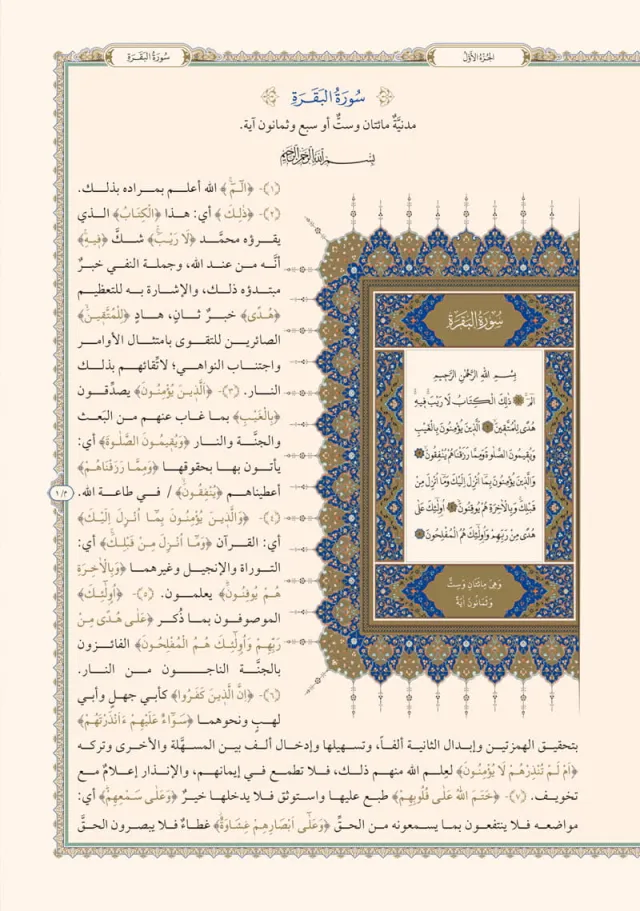 الجُزْءُ الأَوَّلُ
سُورَةُ البَقَرَةِ
سُورَةُ البَقَرَةِ
مدنيَّةٌ مائتان وستٌّ أو سبع وثمانون آية.
بِسْمِ اللهِ الرَّحْمٰنِ الرَّحِيمِ
(١)- ﴿الٓمٓۚ﴾ الله أعلم بمراده بذلك.
(٢)- ﴿ذٰلِكَ﴾ أي: هذا ﴿الْكِتَابُ﴾ الذي
يقرؤه محمَّد ﴿لَا رَيْبَۚۛ﴾ شكَّ ﴿ف۪يهِۚۛ﴾
أنَّه من عند الله، وجملة النفي خبرٌ
مبتدؤه ذلك، والإشارة به للتعظيم
﴿هُدًى﴾ خبرٌ ثانٍ، هادٍ ﴿لِلْمُتَّق۪ينَۙ﴾
الصائرين للتقوى بامتثال الأوامر
واجتناب النواهي؛ لاتِّقائهم بذلك
النار. (٣)- ﴿اَلَّذ۪ينَ يُؤْمِنُونَ﴾ يصدِّقون
﴿بِالْغَيْبِ﴾ بما غاب عنهم من البَعث
والجنَّة والنار ﴿وَيُق۪يمُونَ الصَّلٰوةَ﴾ أي:
يأتون بها بحقوقها ﴿وَمِمَّا رَزَقْنَاهُمْ﴾
أعطيناهم ﴿يُنْفِقُونَۙ﴾ / في طاعة الله.
(٤)- ﴿وَالَّذ۪ينَ يُؤْمِنُونَ بِمَٓا اُنْزِلَ اِلَيْكَ﴾
أي: القرآن ﴿وَمَٓا اُنْزِلَ مِنْ قَبْلِكَۚ﴾ أي:
التوراة والإنجيل وغيرهما ﴿وَبِالْاٰخِرَةِ
هُمْ يُوقِنُونَۜ﴾ يعلمون. (٥)- ﴿اُو۬لٰٓئِكَ﴾
الموصوفون بما ذُكر ﴿عَلٰى هُدًى مِنْ
رَبِّهِمْ وَاُو۬لٰٓئِكَ هُمُ الْمُفْلِحُونَ﴾ الفائزون
بالجنَّة الناجون من النار.
(٦)- ﴿اِنَّ الَّذ۪ينَ كَفَرُوا﴾ كأبي جهلٍ وأبي
لهبٍ ونحوهما ﴿سَوَٓاءٌ عَلَيْهِمْ ءَاَنْذَرْتَهُمْ﴾
١/٢
سُورَةُ البَقَرَةِ
بِسْمِ اللهِ الرَّحْمٰنِ الرَّحِيمِ
الٓمٓۚ ذٰلِكَ الْكِتَابُ لَا رَيْبَۚۛ ف۪يهِۚۛ
هُدًى لِلْمُتَّق۪ينَۙ اَلَّذ۪ينَ يُؤْمِنُونَ بِالْغَيْبِ
وَيُق۪يمُونَ الصَّلٰوةَ وَمِمَّا رَزَقْنَاهُمْ يُنْفِقُونَۙ
وَالَّذ۪ينَ يُؤْمِنُونَ بِمَٓا اُنْزِلَ اِلَيْكَ وَمَٓا اُنْزِلَ مِنْ
قَبْلِكَۚ وَبِالْاٰخِرَةِ هُمْ يُوقِنُونَۜ اُو۬لٰٓئِكَ عَلٰى
هُدًى مِنْ رَبِّهِمْ وَاُو۬لٰٓئِكَ هُمُ الْمُفْلِحُونَ
وَهِيَ مِائَتَانِ وَسِتٌّ
وَثَمَانُونَ اٰيَةً
بتحقيق الهمزتين وإبدال الثانية ألفاً، وتسهيلها وإدخال ألف بين المسهَّلة والأخرى وتركه
﴿اَمْ لَمْ تُنْذِرْهُمْ لَا يُؤْمِنُونَ﴾ لعِلم الله منهم ذلك، فلا تطمع في إيمانهم، والإنذار إعلامٌ مع
تخويف. (٧)- ﴿خَتَمَ اللّٰهُ عَلٰى قُلُوبِهِمْ﴾ طبع عليها واستوثق فلا يدخلها خيرٌ ﴿وَعَلٰى سَمْعِهِمْۜ﴾ أي:
مواضعه فلا ينتفعون بما يسمعونه من الحقِّ ﴿وَعَلٰٓى اَبْصَارِهِمْ غِشَاوَةٌۘ﴾ غطاءٌ فلا يبصرون الحقَّ